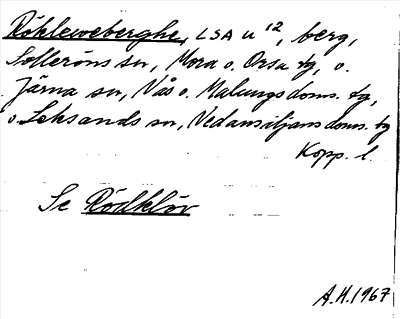 Rökleweberghe, LSA U 12, berg,
Solleröns sn, Mora o. Orsa tg, o.
Järna sn, Nås o. Malungs doms. tg,
o. Leksands sn, Nedansiljans doms. tg
Kopp. l.
Se Rödklöv
A.H. 1967